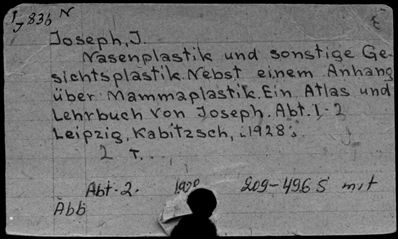 J 836 N
Joseph, J.
Nasenplastik und sonstige Ge-
sichtsplastik. Nebst einem Anhang
über Mammaplastik. Ein Atlas und
Lehrbuch von Joseph. Abt. 1-2
Leipzig, Kabitzsch, 1928.
2 T...
Abt. 2. 1928 209-496 S mit
Abb